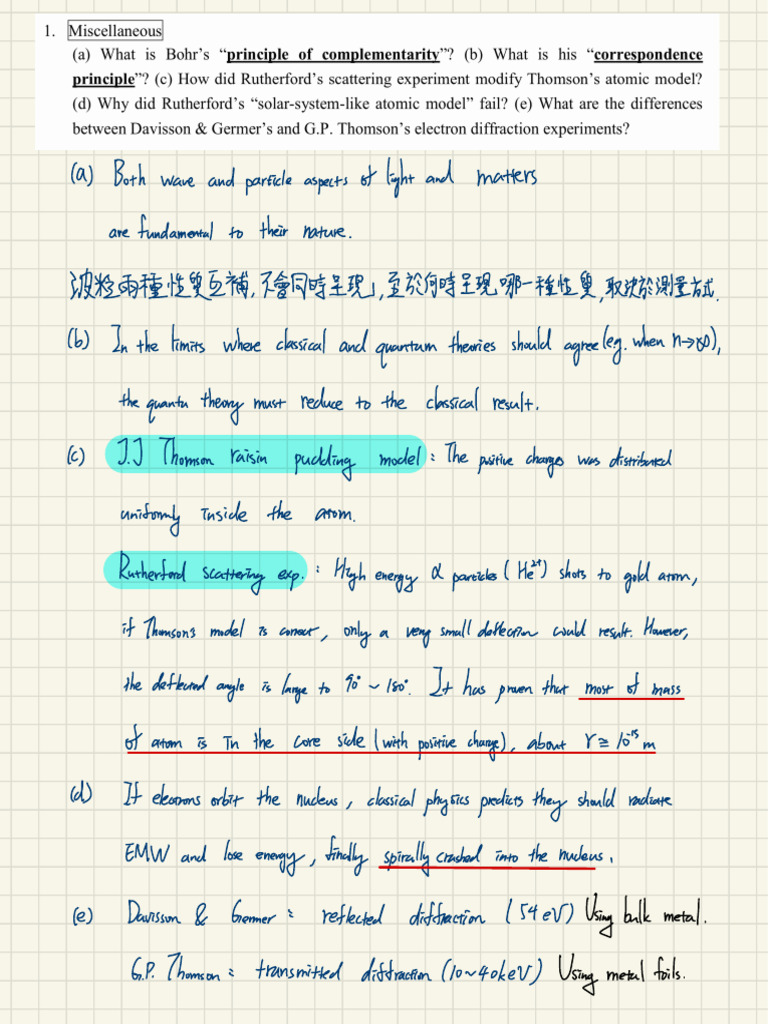 1. Miscellaneous
(a) What is Bohr's “principle of complementarity”? (b) What is his “correspondence
principle”? (c) How did Rutherford's scattering experiment modify Thomson's atomic model?
(d) Why did Rutherford's “solar-system-like atomic model” fail? (e) What are the differences
between Davisson & Germer's and G.P. Thomson's electron diffraction experiments?
(a) Both wave and particle aspects of light and matters
are fundamental to their nature.
波粒兩種性質互補,不會同時呈現」,至於何時呈現哪一種性質,取決於測量方式.
(b) In the limits where classical and quantum theories should agree (eg. when n→∞),
the quantu theory must reduce to the classical result.
(c) J.J Thomson raisin pudding model : The positive charges was distributed
uniformly inside the atom.
Rutherford scattering exp. : High energy α particles (He²⁺) shots to gold atom,
if Thomson's model is correct, only a very small deflection would result. However,
the deflected angle is large to 90° ~ 180°. It has proven that most of mass
of atom is in the core side (with positive charge), about r ≅ 10⁻¹⁵ m
(d) If electrons orbit the nucleus, classical physics predicts they should radiate
EMW and lose energy, finally spirally crashed into the nucleus.
(e) Davisson & Germer : reflected diffraction (54 eV) Using bulk metal.
G.P. Thomson : transmitted diffraction (10~40keV) Using metal foils.